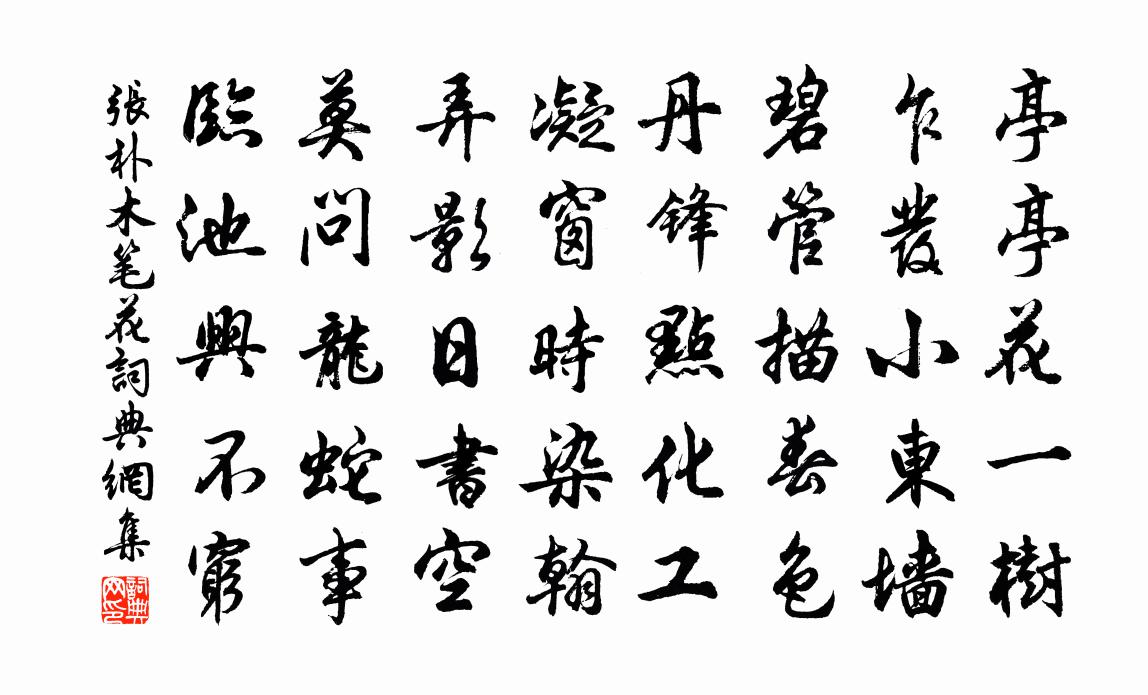 亭亭花一樹
乍發小東墻
碧管描春色
丹鋒點化工
凝窗時染翰
弄影日書空
莫問龍蛇事
臨池興不窮
張朴木笔花詞典網集
詞典網印